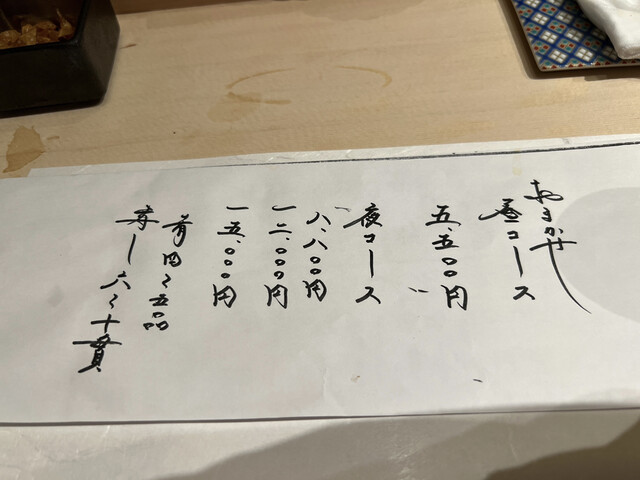 おまかせ
昼コース
五、五〇〇円
夜コース
八、八〇〇円
一二、〇〇〇円
一五、〇〇〇円
肴四〜五品
寿し六〜十貫